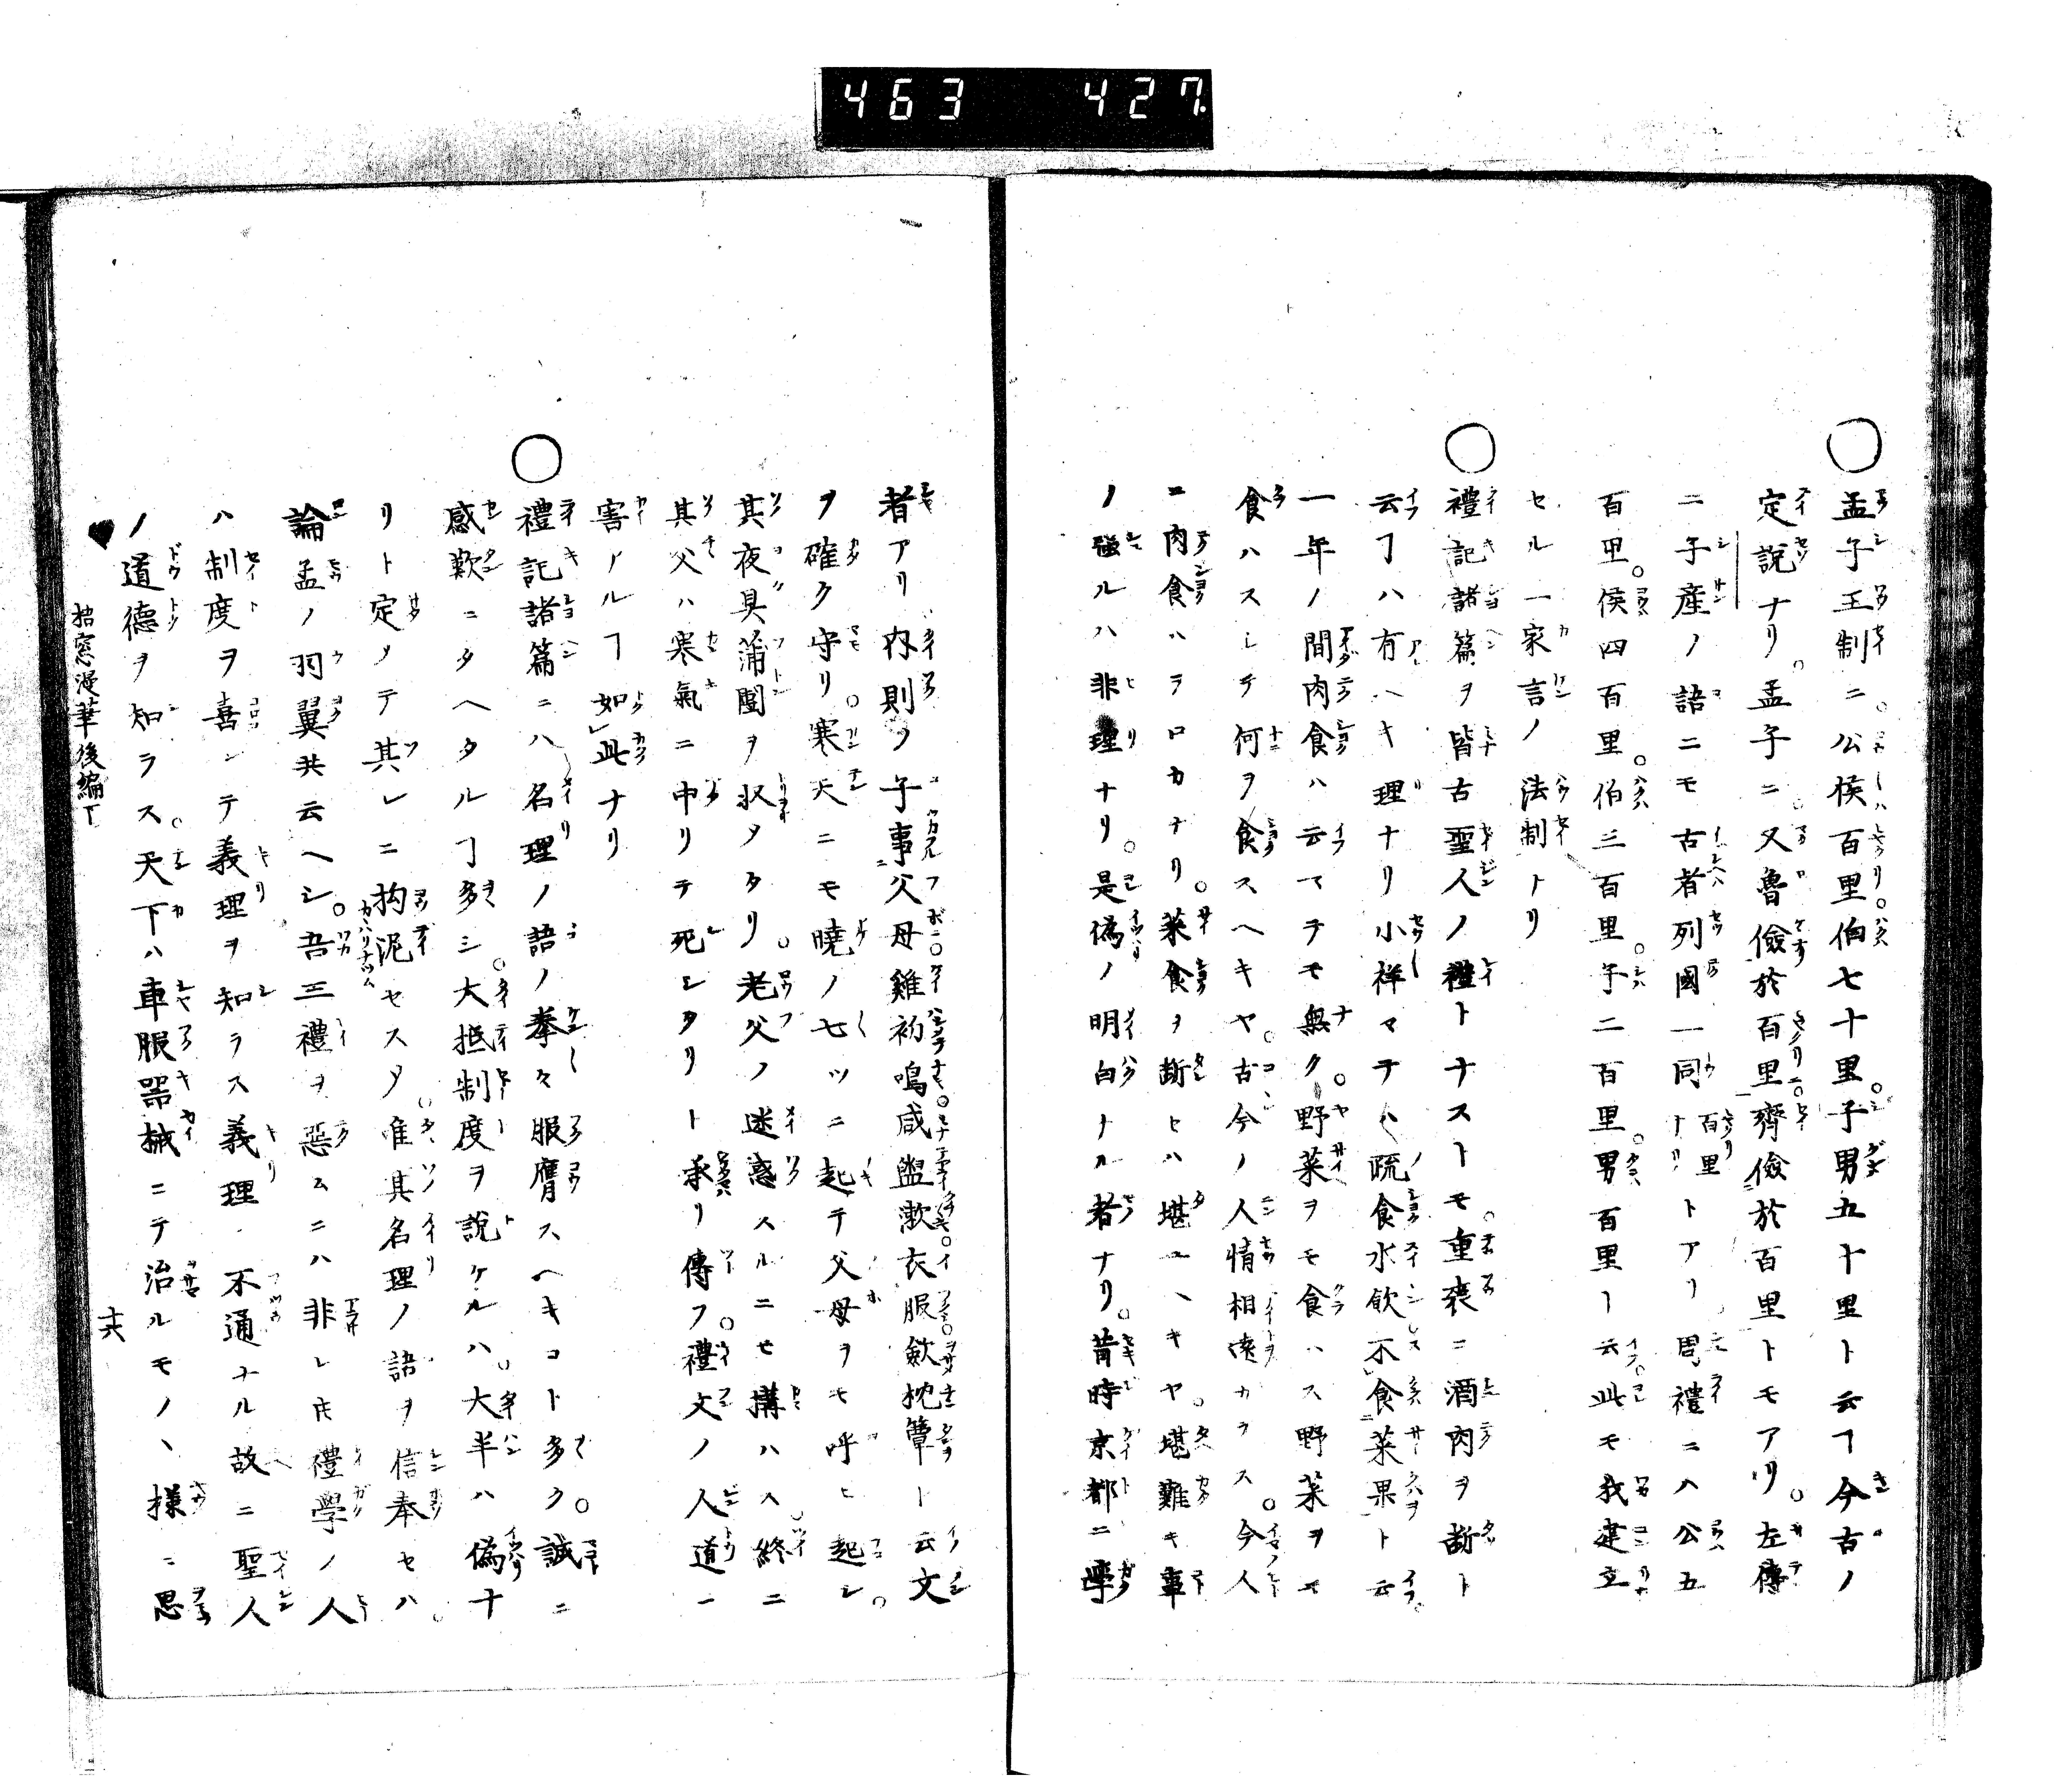 463 427
○孟子王制ニ。公侯百里。伯七十里。子男五十里ト云ヿ今古ノ
定說ナリ。孟子ニ。又魯儉於百里。齊儉於百里トモアリ。左傳
ニ子產ノ語ニモ古者列國一同百里ナリトアリ周禮ニハ公五
百里。侯四百里。伯三百里。子二百里。男百里ト云此モ我建立
セル一家言ノ法制トリ
○禮記諸篇ヲ皆古聖人ノ禮トナストモ。重喪ニ酒肉ヲ斷ト
云ヿハ有ヘキ理ナリ小祥マテハ疏食水飲不食菜果ト云。
一年ノ間肉食ハ云マテモ無ク。野菜ヲモ食ハス野菜ヲモ
食ハスシテ何ヲ食スヘキヤ。古今ノ人情相遠カラス。今人
ニ肉食ハラロカナリ。菜食ヲ斷セハ堪ユヘキヤ。堪難キ事
ノ強ルハ非理ナリ。是偽ノ明白ナル者ナリ。昔時京都ニ學
者アリ內則ノ子事父母雞初鳴咸盥漱衣服斂枕簟ト云文
ヲ確ク守リ。寒天ニモ曉ノ七ツニ起テ父母ヲモ呼ヒ起シ。
其夜具蒲團ヲ収タリ。老父ノ迷惑スルニモ搆ハス。終ニ
其父ハ寒氣ニ中リテ死シタリト承リ傳フ。禮文ノ人道ニ
害アルヿ如此ナリ
○禮記諸篇ニハ名理ノ語ノ拳々服膺スヘキコト多ク。誠ニ
感歎ニタヘタルヿ多シ。大抵制度ヲ說ケルハ。大半ハ偽ナ
リト定メテ其レニ拘泥セスタ。唯其名理ノ語ヲ信奉セハ。
論孟ノ羽翼共云ヘシ。吾三禮ヲ惡ムニハ非レ𪜈禮學ノ人
ハ制度ヲ喜ンテ義理ヲ知ラス義理不通ナル故ニ聖人
ノ道德ヲ知ラス。天下ハ車服器械ニテ治ルモノヽ樣ニ思
後編下
十六